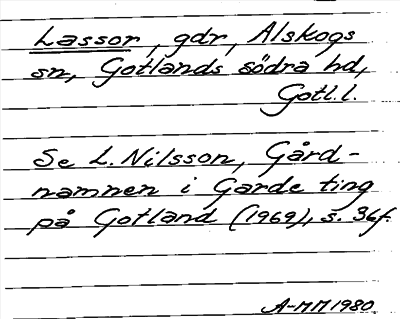 Lassor, gdr, Alskogs
sn, Gotlands södra hd,
Gotl.l.
Se L. Nilsson, Gård-
namnen i Garde ting
på Gotland (1969), s. 36f.
A-MM 1980